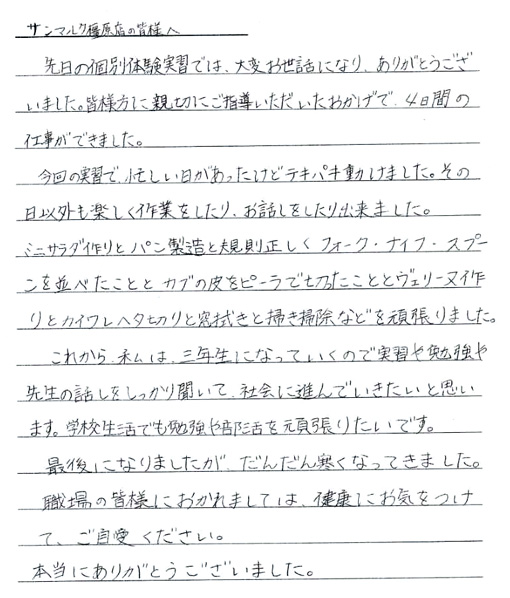 サンマルク橿原店の皆様へ
先日の個別体験実習では、大変お世話になり、ありがとうござ
いました。皆様方に親切にご指導いただいたおかげで、4日間の
仕事ができました。
今回の実習で、忙しい日があったけどテキパキ動けました。その
日以外も楽しく作業をしたり、お話しをしたり出来ました。
ミニサラダ作りとパン製造と規則正しくフォーク・ナイフ・スプー
ンを並べたこととカブの皮をピーラで切たこととヴェリーヌ作
りとカイワレヘタ切りと窓拭きと掃き掃除などを頑張りました。
これから、私は、三年生になっていくので実習や勉強や
先生の話しをしっかり聞いて、社会に進んでいきたいと思い
ます。学校生活でも勉強や部活を頑張りたいです。
最後になりましたが、だんだん寒くなってきました。
職場の皆様におかれましては、健康にお気をつけ
て、ご自愛ください。
本当にありがとうございました。